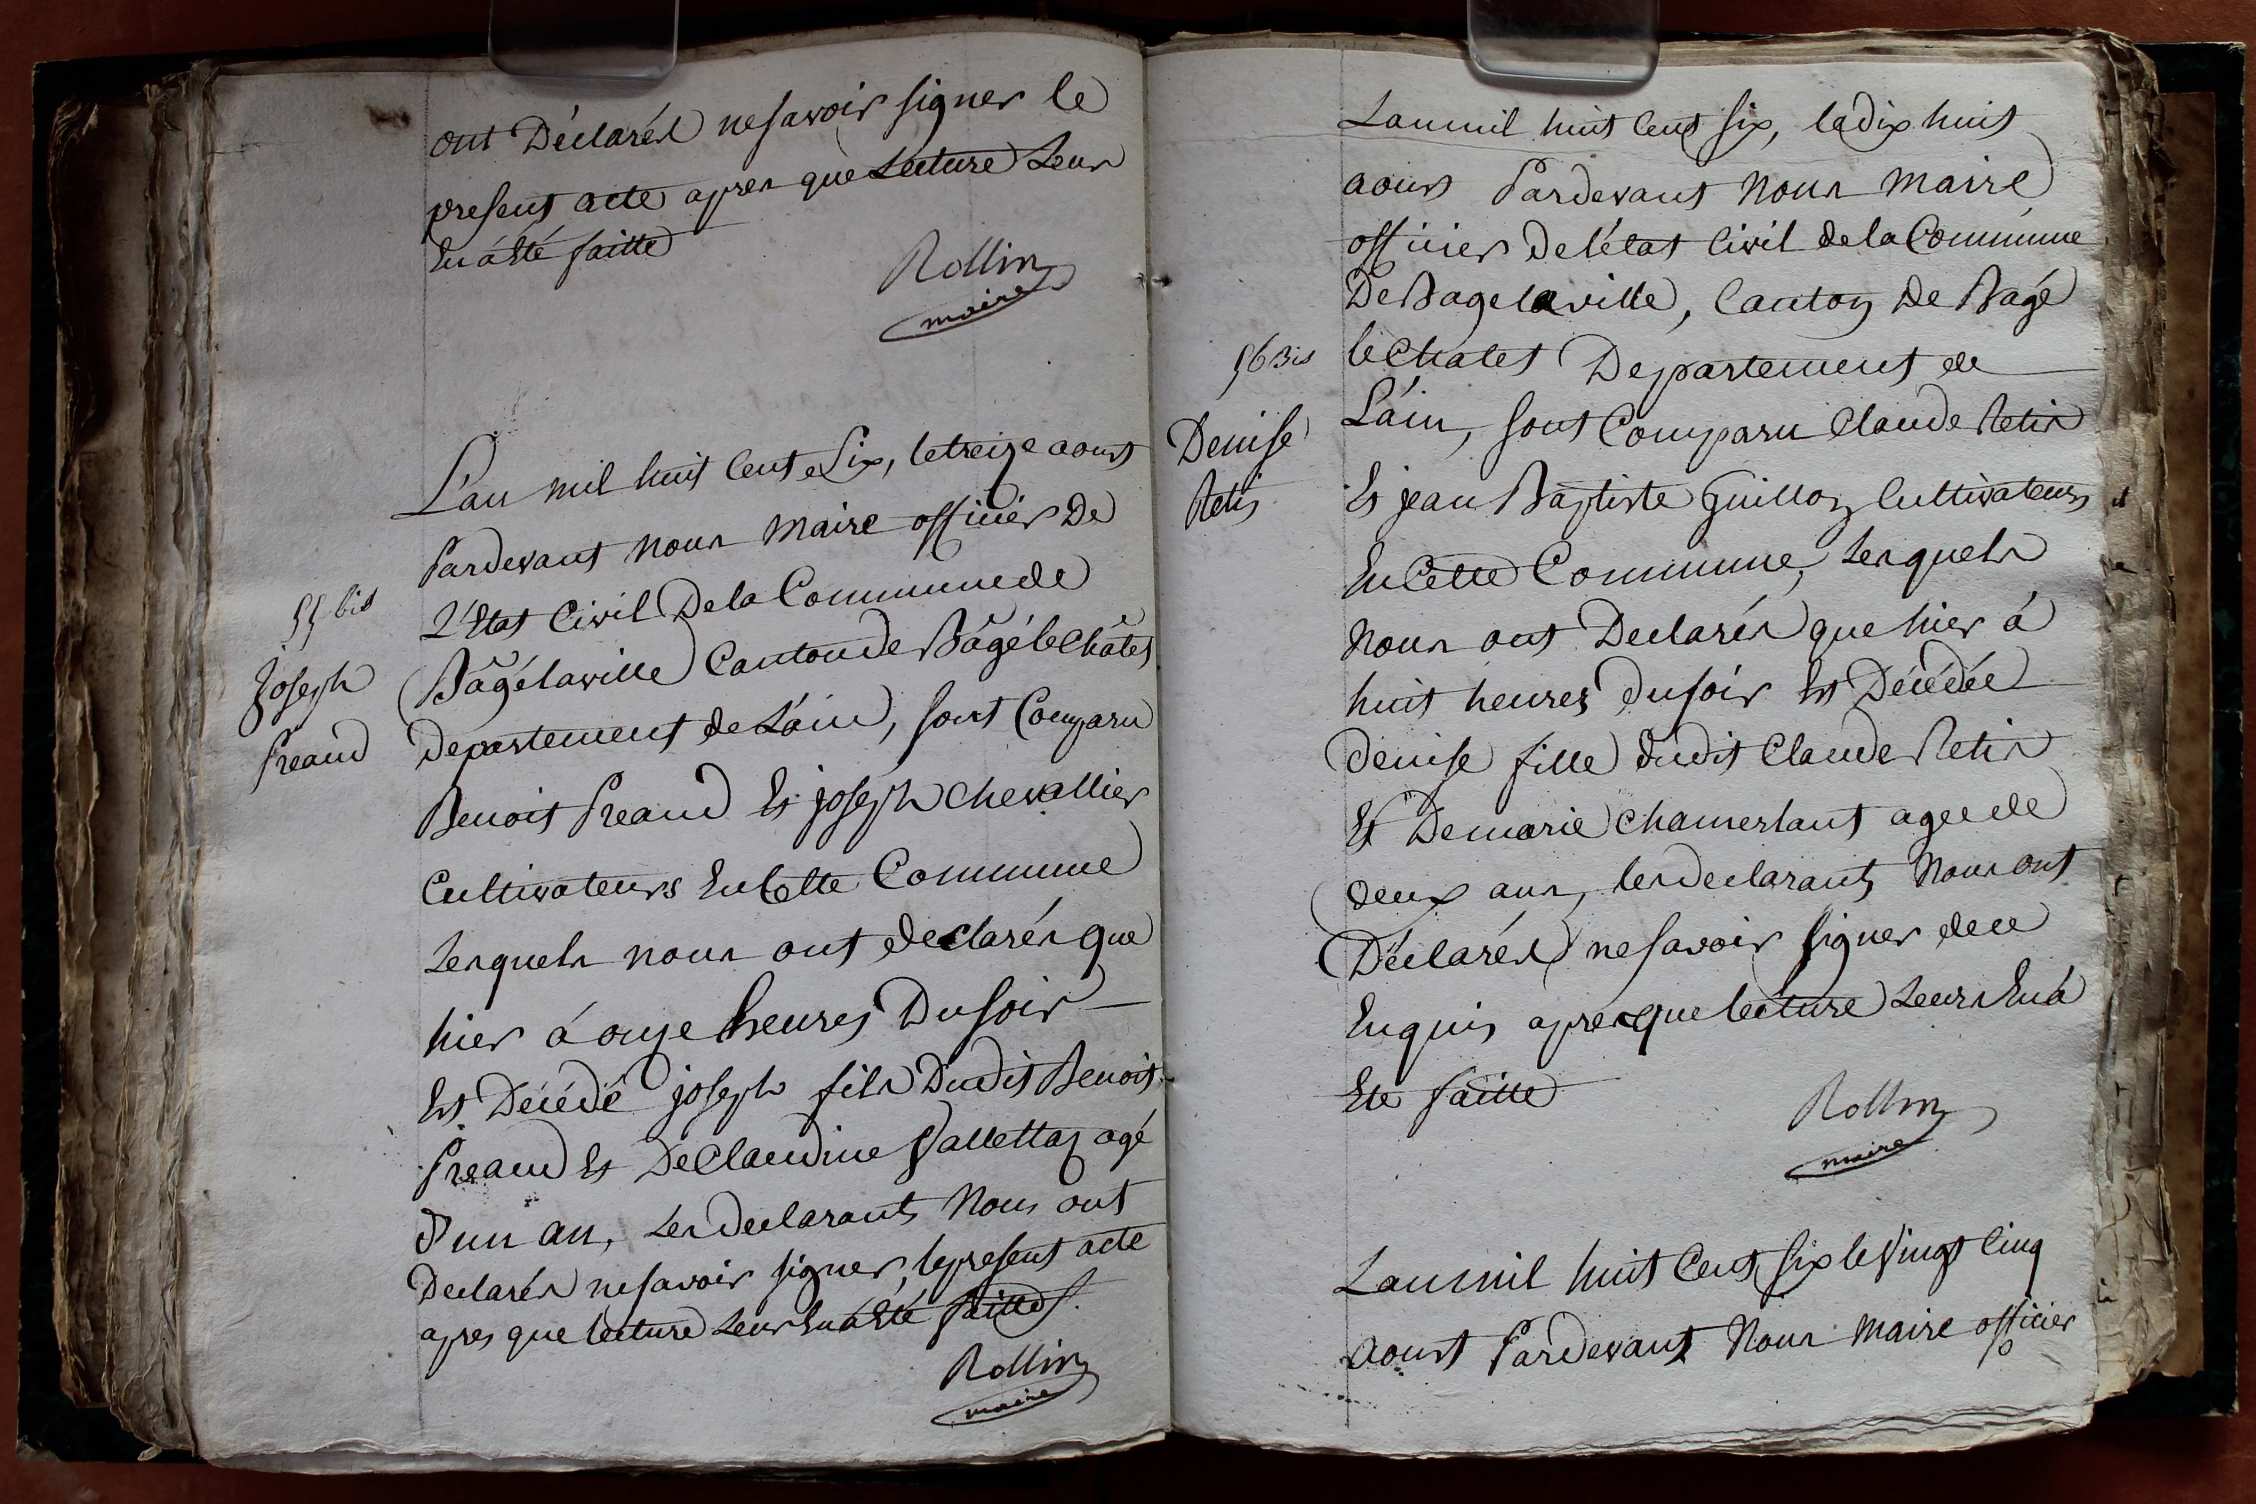 ont Déclarés ne savoir signer le
present acte apres que Lecture Leur
En á Eté faitte
Rollin
maire
L'an mil huit Cent Six, le treize aoust
Pardevant nous maire officier De
L'Etat Civil De la Commune de
Bâgé la ville Canton de Bâgé le Châtel
Departement de L'ain, sont Comparu
55 bis
Joseph
Preaud
Benoit Preaud Et joseph chevallier
Cultivateurs En Cette Commune
Lesquels nous ont declarés que
hier á onze heures Du soir
Est Décédé joseph fils Dudit Benoit
Preaud Et De Claudine Vallettaz agé
d'un an, Les declarants Nous ont
Declarés ne savoir signer, le present acte
apres que lecture Leur En á Eté faitte
Rollin
maire
L'an mil huit Cent six, le dix huit
aoust Pardevant Nous maire
officier De l'état Civil de la Commune
De Bage la ville, Canton De Bagé
le Chatel Departement de
L'ain, sont Comparu Claude Retis
56 Bis
Denise
Retis
Et jean Baptiste Guillon Cultivateurs
En Cette Commune, Lesquels
Nous ont Declarés que hier á
huit heures du soir Est Décédée
denise fille dudit Claude Retis
Et De marie Chamerlant agee de
deux ans, les declarants Nous ont
Déclarés ne savoir signer de ce
Enquis apres que lecture Leurs En á
Ete faitte
Rollin
maire
L'an mil huit Cent six le Vingt Cinq
aoust Pardevant Nous maire officier